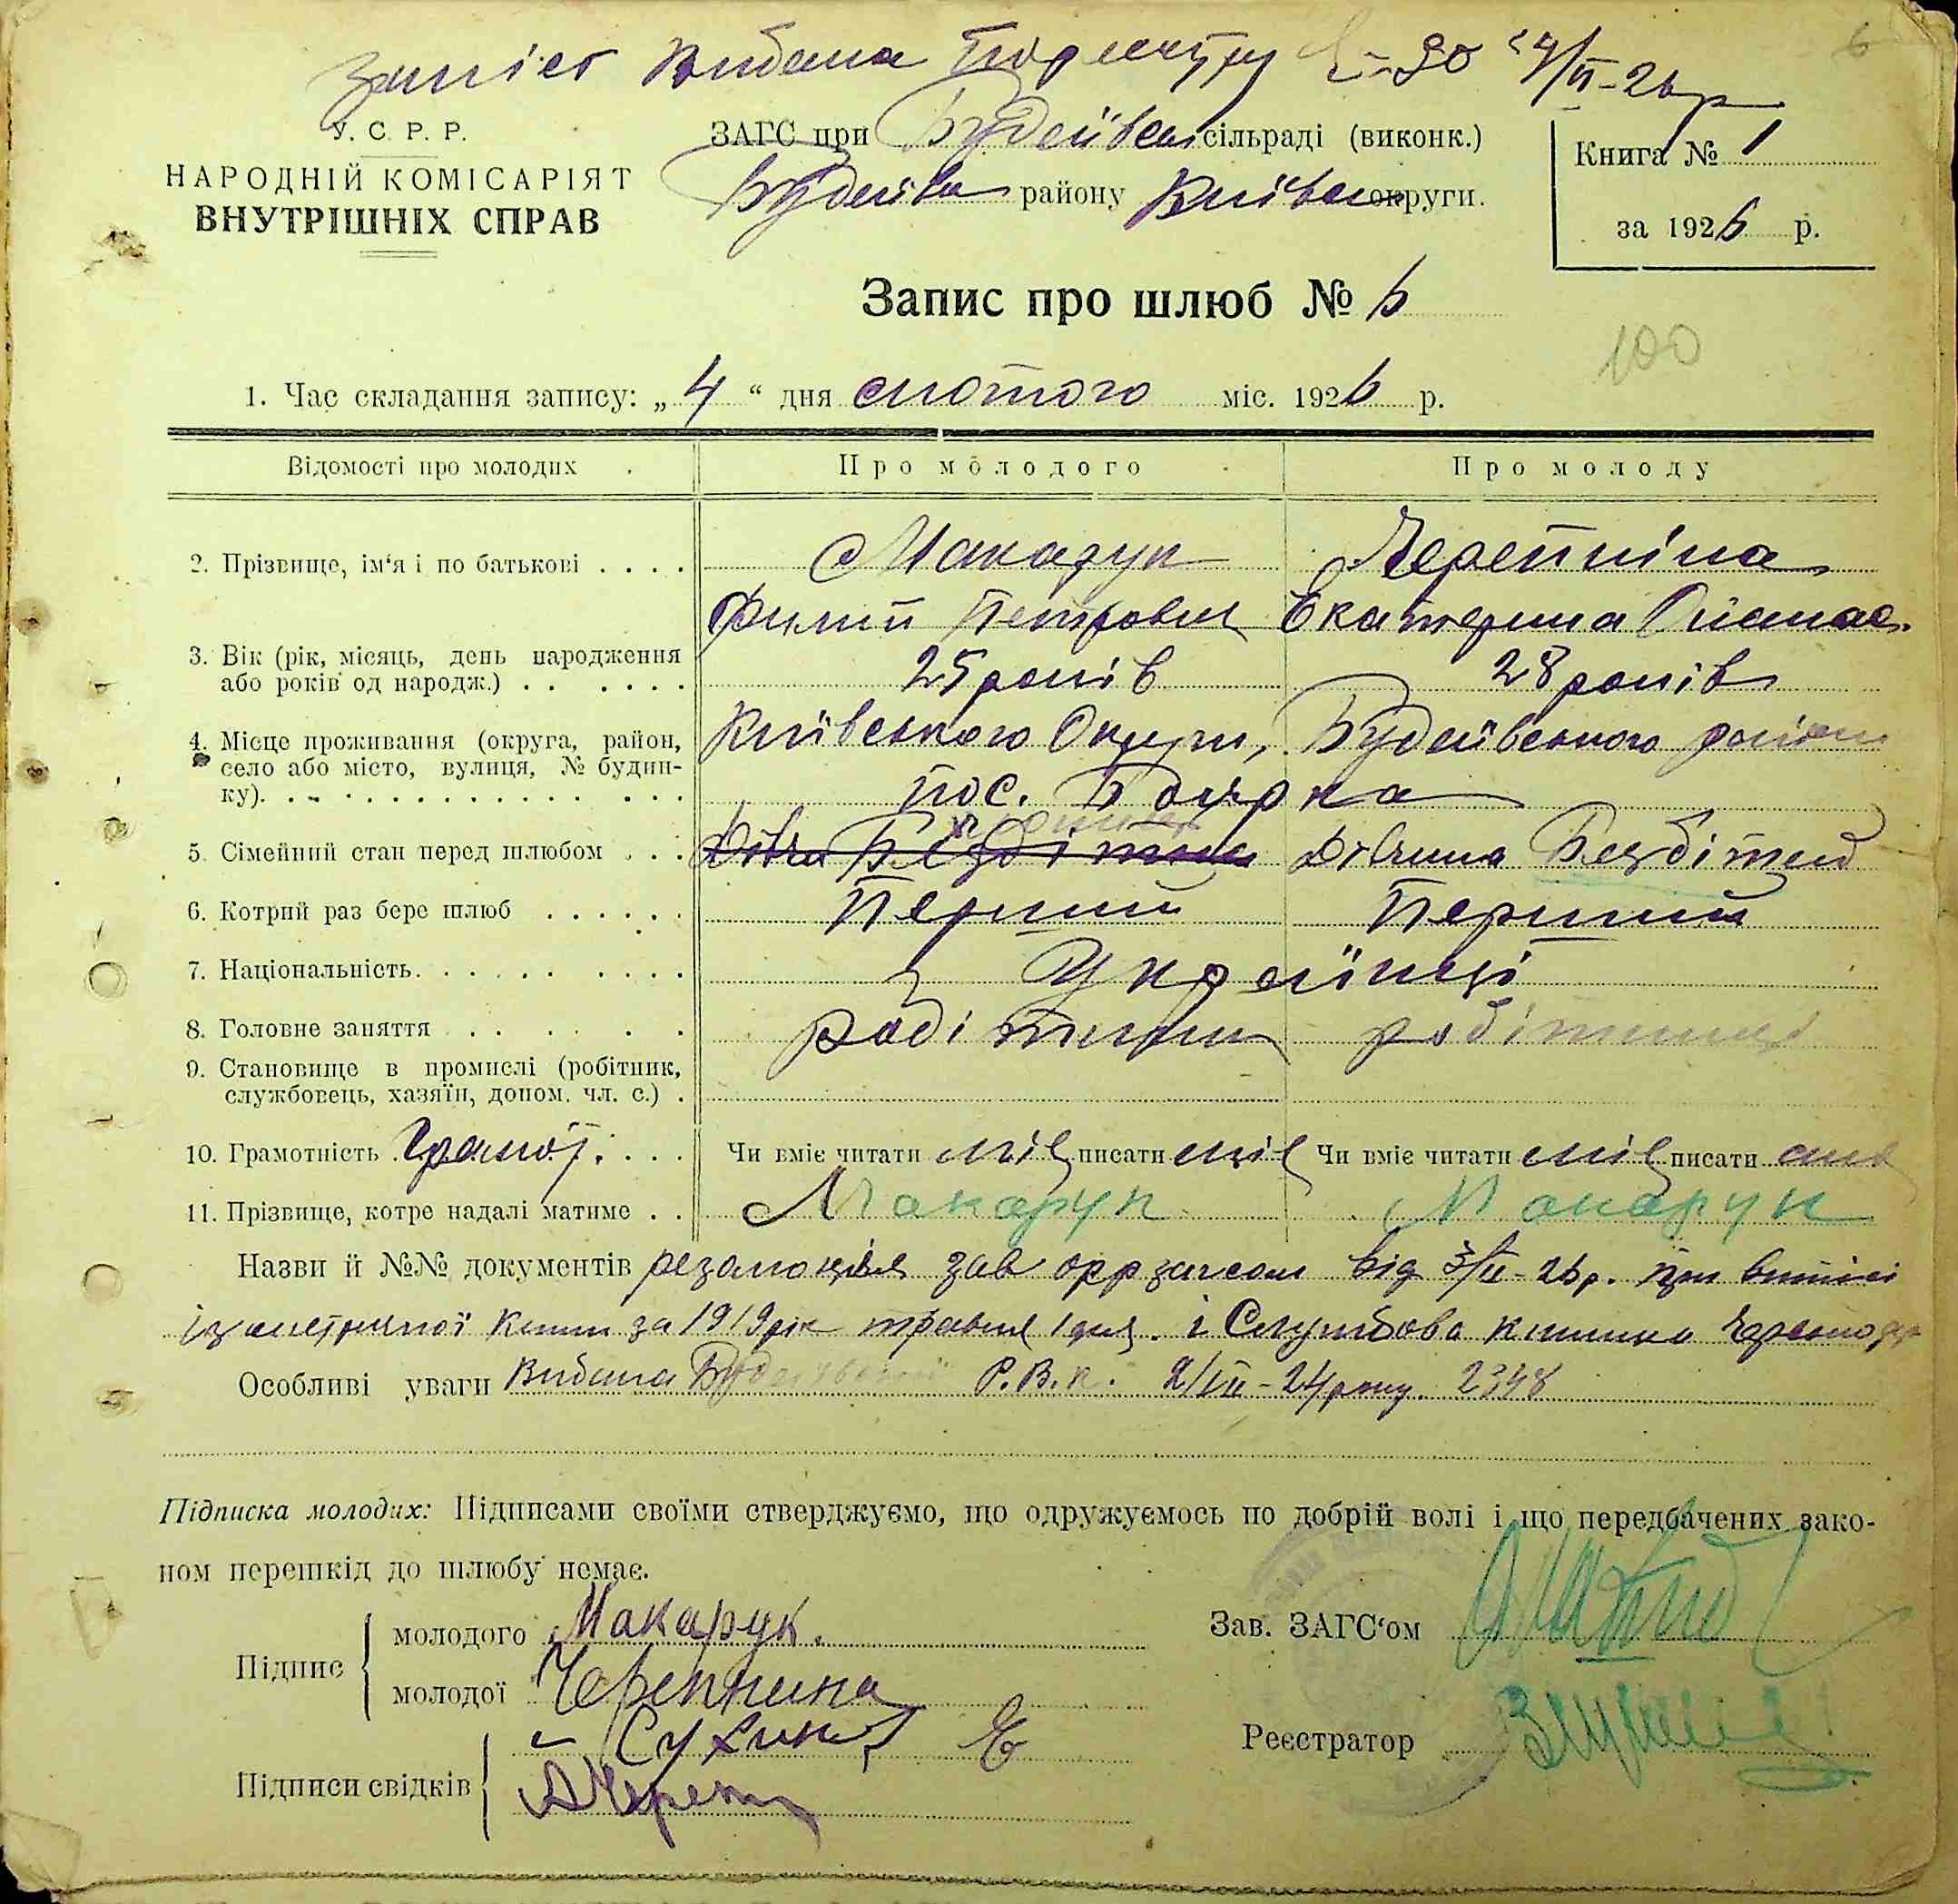 6
видана
90 4/II-26р
У. С. Р. Р.
НАРОДНІЙ КОМІСАРІЯТ
ВНУТРІШНІХ СПРАВ
ЗАГС при Будаївськ сільраді (виконк.)
району Київськ округи.
Книга № 1
за 1926 р.
Запис про шлюб № 6
100
1. Час складання запису: „ 4 “ дня лютого міс. 1926 р.
Відомості про молодих
Про молодого
Про молоду
2. Прізвище, ім'я і по батькові . . . .
Макарук
Черепніна
Филип Петрович
Екатерина
3. Вік (рік, місяць, день народження
або років од народж.) . . . . . .
25 років
28 років
4. Місце проживання (округа, район,
село або місто, вулиця, № будин-
ку). . . . . . . . . . . . . .
Київського Округи, Будаївського району
пос. Боярка
5. Сімейний стан перед шлюбом . . .
Бездітний
Дівчина Бездітна
6. Котрий раз бере шлюб . . . . . .
Перший
Перший
7. Національність. . . . . . . . . .
Українці
8. Головне заняття . . . . . .
9. Становище в промислі (робітник,
службовець, хазяїн, допом. чл. с.) .
10. Грамотність . Грамот. . . .
Чи вміє читати вміє писати вміє
Чи вміє читати вміє писати вміє
11. Прізвище, котре надалі матиме . .
Макарук
Макарук
Назви й №№ документів резолюція зав від 3/II-26р. при витисі
книги за 1919 рік травня 1 дня. і Службова книжка
Особливі уваги Видана Будаївським Р.В.К. 2/III-24 року. 2348
Підписка молодих: Підписами своїми стверджуємо, що одружуємось по добрій волі і що передбачених зако-
ном перешкід до шлюбу немає.
Підпис
молодого Макарук.
молодої Черепнина
Підписи свідків
Зав. ЗАГС'ом
Реєстратор